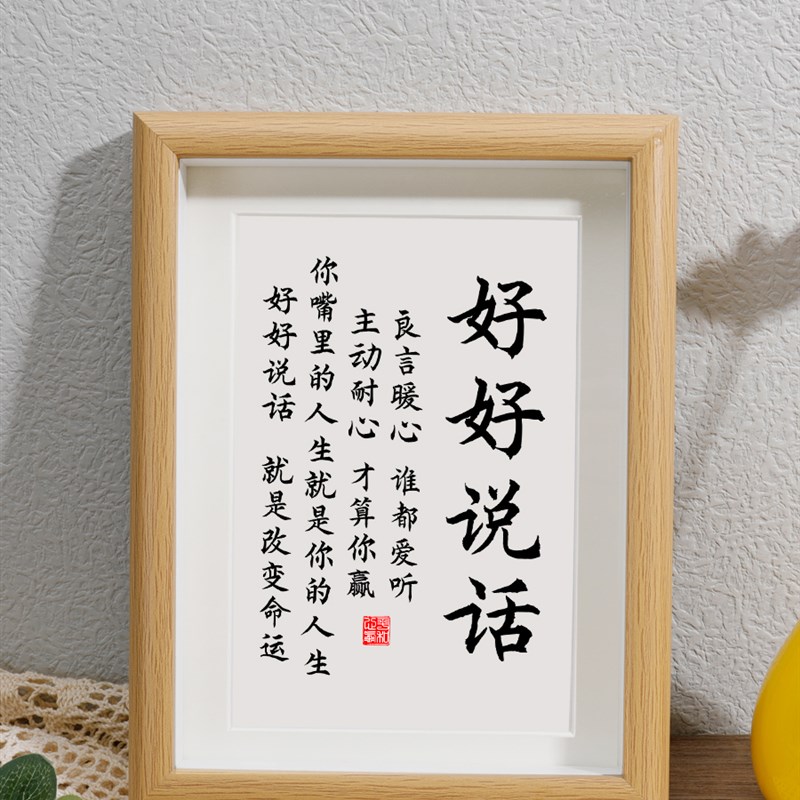 好好说话
良言暖心 谁都爱听
主动耐心 才算你赢
你嘴里的人生就是你的人生
好好说话 就是改变命运